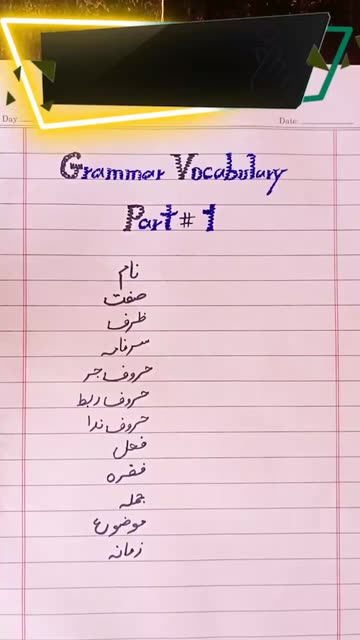 Day
Date:
Grammar Vocabulary
Part # 1
نام
صفت
ظرف
سرنامہ
حروف جر
حروف ربط
حروف ندا
فعل
فقرہ
جملہ
موضوع
زمانہ